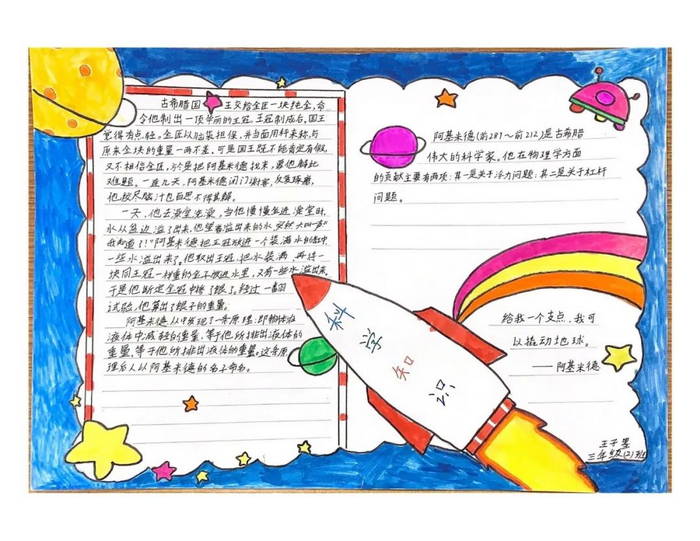 古希腊国王交给金匠一块纯金,命
令他制出一顶华丽的王冠。王冠制成后,国王
觉得有点轻,金匠以脑袋担保,并当面用秤来称,与
原来金块的重量一两不差。可是国王还不能完全有假,
又不相信金匠,于是把阿基米德找来,要他解此
难题。一连几天,阿基米德闭门谢客,反复琢磨,
他绞尽脑汁也百思不得其解。
一天,他去澡堂洗澡,当他慢慢坐进澡堂时,
水从盆边溢了出来,他望着溢出来的水,突然大叫一声"
我知道了!"阿基米德把王冠放进一个装满水的缸中,
一些水溢出来了。他取出王冠,把水装满,再将一
块同王冠一样重的金子放进水里,又有一些水溢出来。
于是他断定金冠中掺了银子。经过一翻
试验,他算出了银子的重量。
阿基米德从中发现了一条原理:即物体在
液体中减轻的重量,等于他所排出液体的
重量。等于他所排出液体的重量。这条原
理后人以阿基米德的名子命名。
阿基米德(前287~前212)是古希腊
伟大的科学家。他在物理学方面
的贡献主要有两项:其一是关于浮力问题;其二是关于杠杆
问题。
科学知识
给我一个支点,我可
以撬动地球。
——阿基米德
王子墨
三年级(2)班